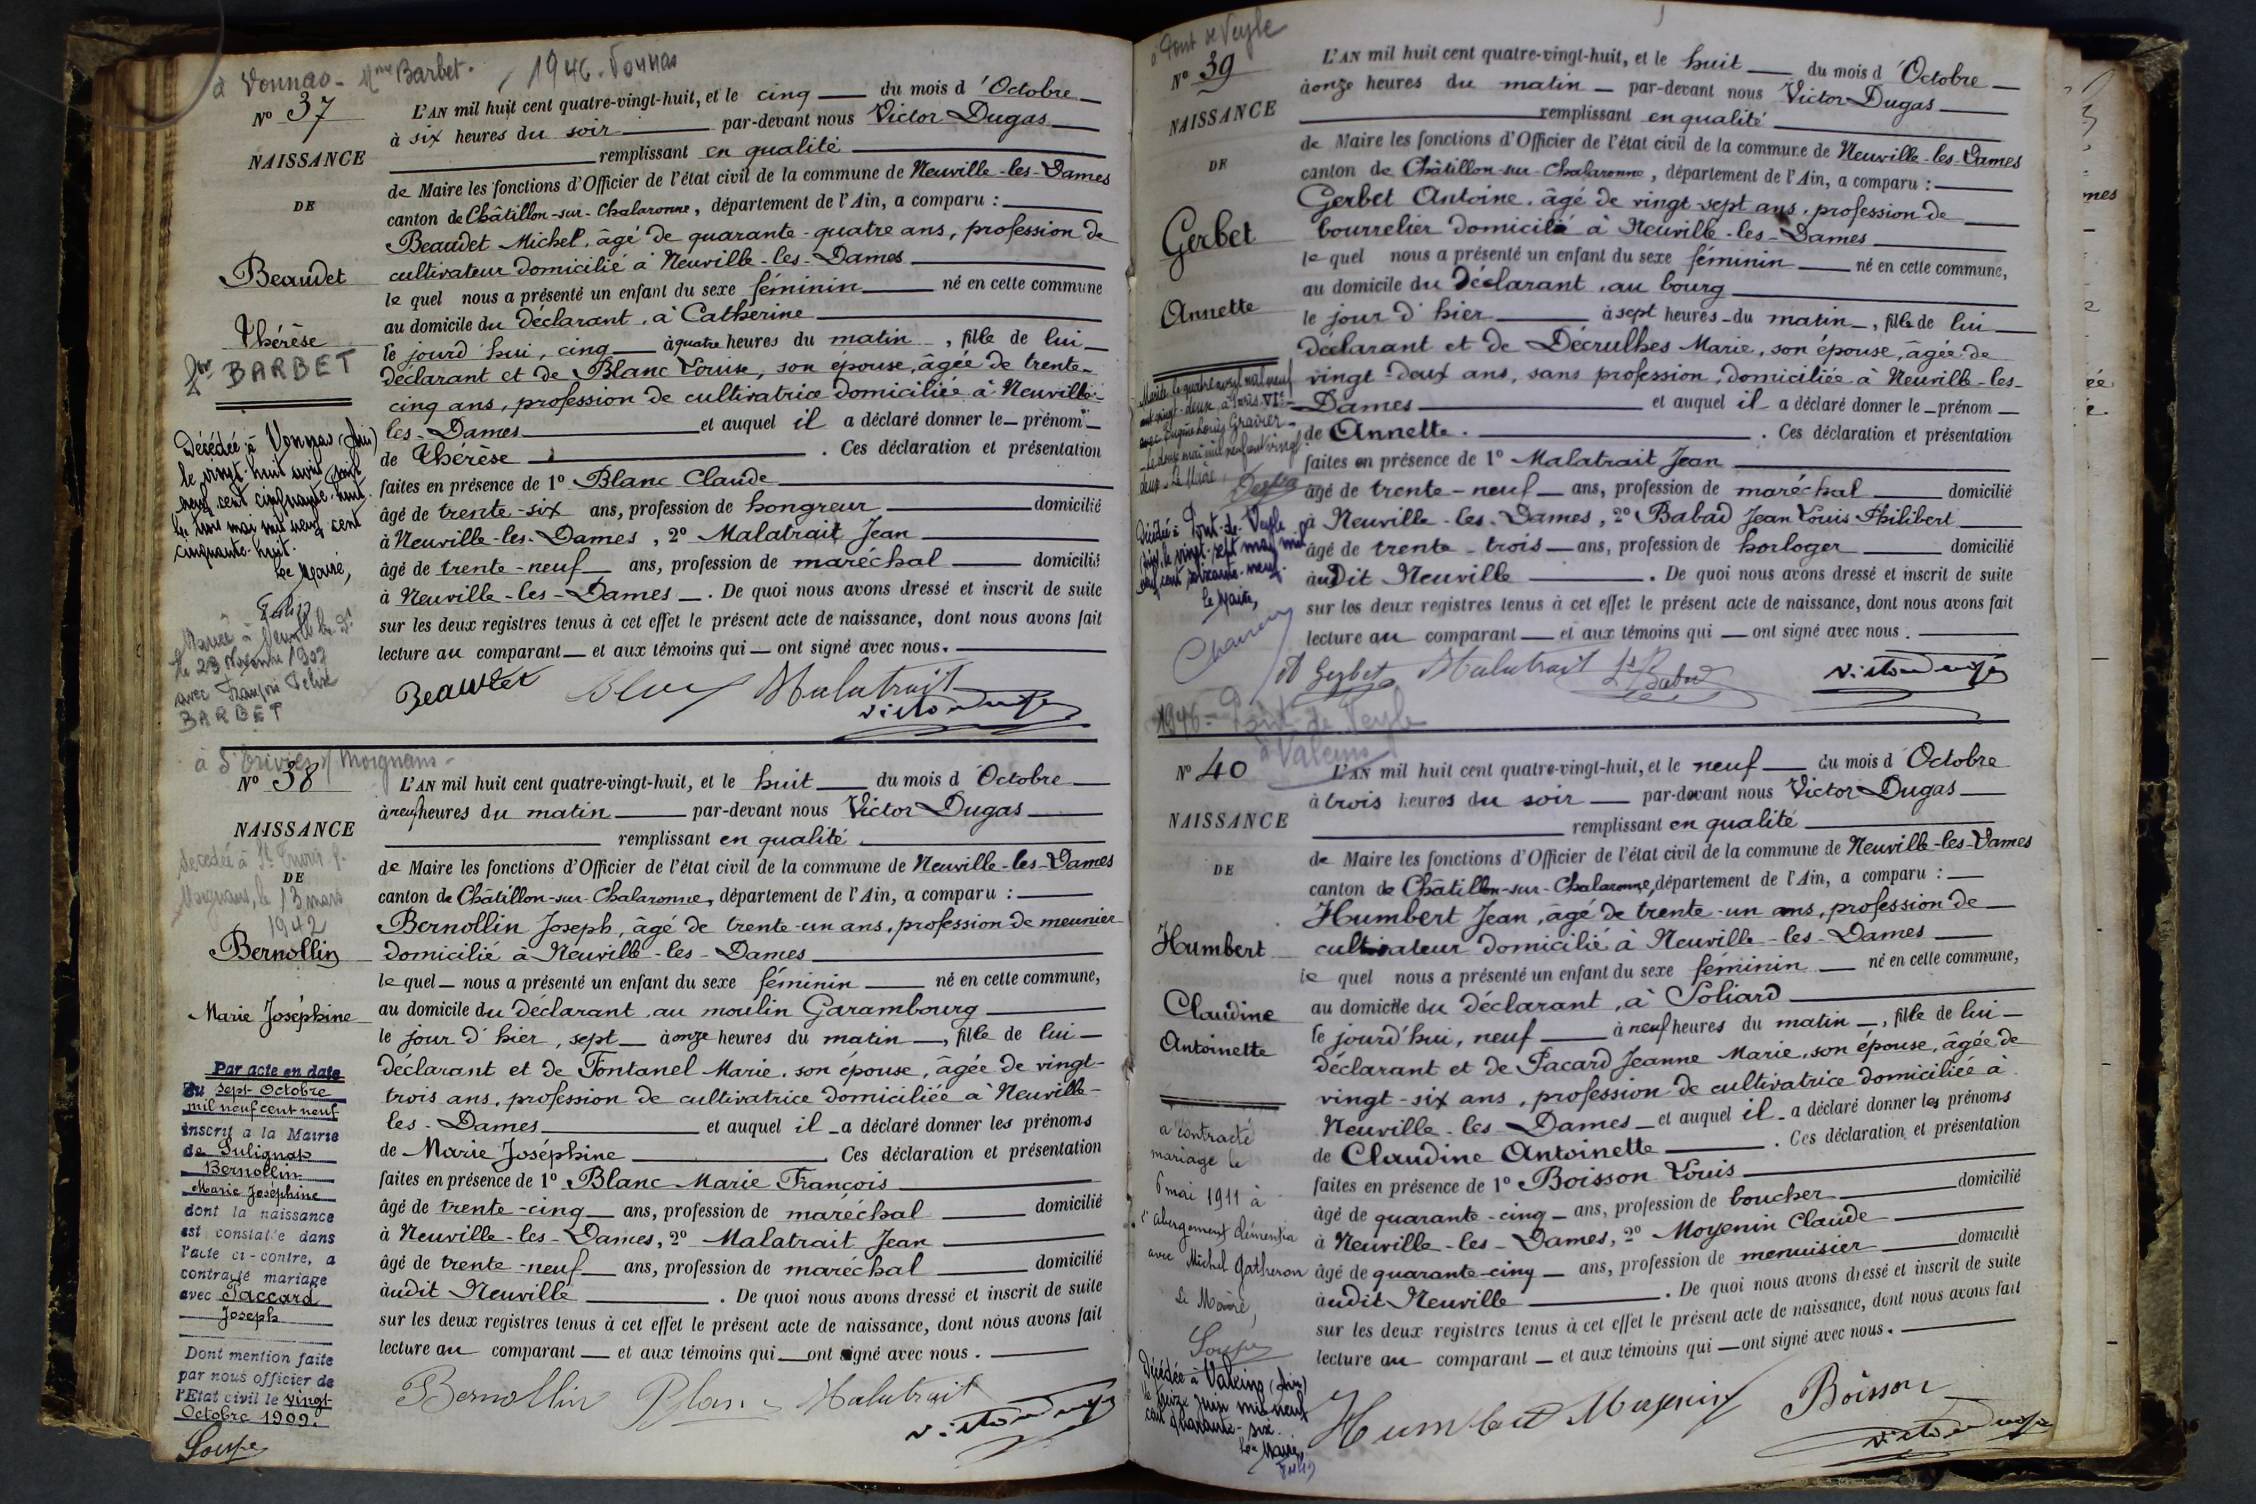 à Vonnas - Mme Barbet. / 1946. Vonnas
No 37
NAISSANCE
DE
Beaudet
Thérèse
BARBET
Décédée à Vonnas (Ain)
le vingt-huit avril mil
neuf cent cinquante-huit.
Le trois mai mil neuf cent
cinquante-huit.
Le Maire,
Mariée à Neuville les Des
le 23 Novembre 1907
avec François Félix
BARBET
L'AN mil huit cent quatre-vingt-huit, et le cinq du mois d'Octobre
à six heures du soir par-devant nous Victor Dugas
remplissant en qualité
de Maire les fonctions d'Officier de l'état civil de la commune de Neuville-les-Dames
canton de Châtillon-sur-Chalaronne, département de l'Ain, a comparu :
Beaudet Michel, âgé de quarante-quatre ans, profession de
cultivateur domicilié à Neuville-les-Dames
le quel nous a présenté un enfant du sexe féminin né en cette commune
au domicile du déclarant, à Catherine
le jourd'hui, cinq à quatre heures du matin, fille de lui
déclarant et de Blanc Louise, son épouse, âgée de trente-
cinq ans, profession de cultivatrice domiciliée à Neuville-
les-Dames et auquel il a déclaré donner le prénom
de Thérèse. Ces déclaration et présentation
faites en présence de 1o Blanc Claude
âgé de trente-six ans, profession de hongreur domicilié
à Neuville-les-Dames, 2o Malatrait Jean
âgé de trente-neuf ans, profession de maréchal domicilié
à Neuville-les-Dames. De quoi nous avons dressé et inscrit de suite
sur les deux registres tenus à cet effet le présent acte de naissance, dont nous avons fait
lecture au comparant et aux témoins qui ont signé avec nous.
Beaudet Blanc Malatrait
Victor Dugas
à St Trivier s/ Moignans
No 38
NAISSANCE
DE
décédée à St Trivier s.
Moignans, le 13 mars
1942
Bernollin
Marie Joséphine
Par acte en date
du sept Octobre
mil neuf cent neuf
inscrit à la Mairie
de Sulignat
Bernollin
Marie Joséphine
dont la naissance
est constatée dans
l'acte ci-contre, a
contracté mariage
avec Paccard
Joseph
Dont mention faite
par nous officier de
l'Etat civil le vingt
Octobre 1909.
Soupe
L'AN mil huit cent quatre-vingt-huit, et le huit du mois d'Octobre
à neuf heures du matin par-devant nous Victor Dugas
remplissant en qualité
de Maire les fonctions d'Officier de l'état civil de la commune de Neuville-les-Dames
canton de Châtillon-sur-Chalaronne, département de l'Ain, a comparu :
Bernollin Joseph, âgé de trente-un ans, profession de meunier
domicilié à Neuville-les-Dames
le quel nous a présenté un enfant du sexe féminin né en cette commune,
au domicile du déclarant, au moulin Garambourg
le jour d'hier, sept à onze heures du matin, fille de lui
déclarant et de Fontanel Marie, son épouse, âgée de vingt-
trois ans, profession de cultivatrice domiciliée à Neuville-
les-Dames et auquel il a déclaré donner les prénoms
de Marie Joséphine Ces déclaration et présentation
faites en présence de 1o Blanc Marie François
âgé de trente-cinq ans, profession de maréchal domicilié
à Neuville-les-Dames, 2o Malatrait Jean
âgé de trente-neuf ans, profession de maréchal domicilié
àudit Neuville. De quoi nous avons dressé et inscrit de suite
sur les deux registres tenus à cet effet le présent acte de naissance, dont nous avons fait
lecture au comparant et aux témoins qui ont signé avec nous.
Bernollin Blanc Malatrait
Victor Dugas
à Pont de Veyle
No 39
NAISSANCE
DE
Gerbet
Annette
Mariée le quatre avril mil neuf
cent vingt-deux, à Paris VIe
avec Eugène Louis Gravier
Le douze mai mil neuf cent vingt
deux. Le Maire,
Décédée à Pont-de-Veyle
(Ain), le vingt-sept mai mil
neuf cent soixante-neuf.
Le Maire,
L'AN mil huit cent quatre-vingt-huit, et le huit du mois d'Octobre
à onze heures du matin par-devant nous Victor Dugas
remplissant en qualité
de Maire les fonctions d'Officier de l'état civil de la commune de Neuville-les-Dames
canton de Châtillon-sur-Chalaronne, département de l'Ain, a comparu :
Gerbet Antoine, âgé de vingt-sept ans, profession de
bourrelier domicilié à Neuville-les-Dames
le quel nous a présenté un enfant du sexe féminin né en cette commune,
au domicile du Déclarant, au bourg
le jour d'hier à sept heures du matin, fille de lui
déclarant et de Décrulhes Marie, son épouse, âgée de
vingt-deux ans, sans profession, domiciliée à Neuville-les-
Dames et auquel il a déclaré donner le prénom
de Annette. Ces déclaration et présentation
faites en présence de 1o Malatrait Jean
âgé de trente-neuf ans, profession de maréchal domicilié
à Neuville-les-Dames, 2o Babad Jean Louis Philibert
âgé de trente-trois ans, profession de horloger domicilié
àudit Neuville. De quoi nous avons dressé et inscrit de suite
sur les deux registres tenus à cet effet le présent acte de naissance, dont nous avons fait
lecture au comparant et aux témoins qui ont signé avec nous.
A Gerbet Malatrait Ls Babad Victor Dugas
1946 = Pont-de-Veyle
à Valeins
No 40
NAISSANCE
DE
Humbert
Claudine
Antoinette
a contracté
mariage le
6 mai 1911 à
l'abergement clémentia
avec Michel Gatheron
Le Maire,
Soupe
Décédée à Valeins (Ain)
le treize juin mil neuf
cent quarante-six.
Le Maire,
L'AN mil huit cent quatre-vingt-huit, et le neuf du mois d'Octobre
à trois heures du soir par-devant nous Victor Dugas
remplissant en qualité
de Maire les fonctions d'Officier de l'état civil de la commune de Neuville-les-Dames
canton de Châtillon-sur-Chalaronne, département de l'Ain, a comparu :
Humbert Jean, âgé de trente-un ans, profession de
cultivateur domicilié à Neuville-les-Dames
le quel nous a présenté un enfant du sexe féminin né en cette commune,
au domicile du déclarant, à Poliard
le jourd'hui, neuf à neuf heures du matin, fille de lui
déclarant et de Pacard Jeanne Marie, son épouse, âgée de
vingt-six ans, profession de cultivatrice domiciliée à
Neuville-les-Dames et auquel il a déclaré donner les prénoms
de Claudine Antoinette. Ces déclaration et présentation
faites en présence de 1o Boisson Louis
âgé de quarante-cinq ans, profession de boucher domicilié
à Neuville-les-Dames, 2o Moyenin Claude
âgé de quarante-cinq ans, profession de menuisier domicilié
àudit Neuville. De quoi nous avons dressé et inscrit de suite
sur les deux registres tenus à cet effet le présent acte de naissance, dont nous avons fait
lecture au comparant et aux témoins qui ont signé avec nous.
Humbert Moyenin Boisson
Victor Dugas